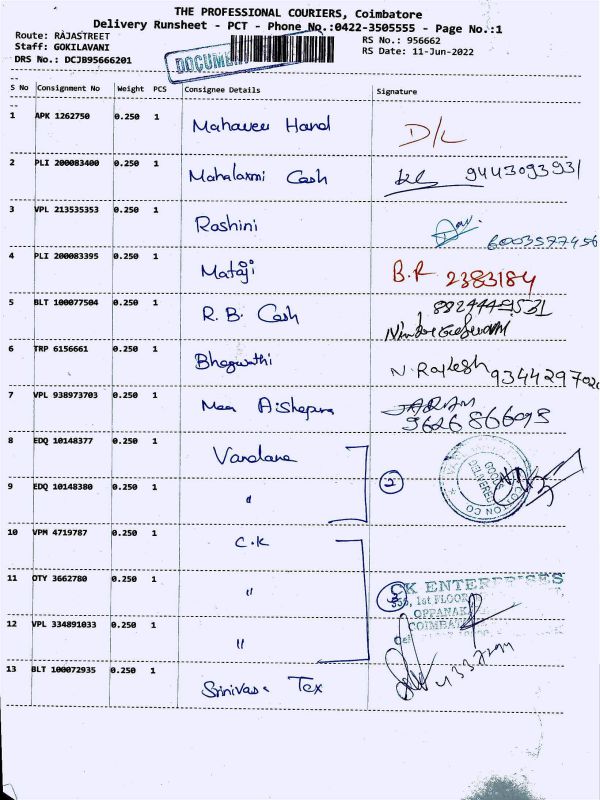 THE PROFESSIONAL COURIERS, Coimbatore
Delivery Runsheet - PCT - Phone No.:0422-3505555 - Page No.:1
Route: RAJASTREET
RS No.: 956662
Staff: GOKILAVANI
RS Date: 11-Jun-2022
DRS No.: DCJB95666201
DOCUME
S No Consignment No Weight PCS Consignee Details Signature
1 APK 1262750 0.250 1 Mahaveer Hand D/L
2 PLI 200083400 0.250 1 Mahalaxmi Cash 9443093931
3 VPL 213535353 0.250 1 Roshini 6003577456
4 PLI 200083395 0.250 1 Mataji B.R 2383184
5 BLT 100077504 0.250 1 R.B. Cash
6 TRP 6156661 0.250 1 Bhagwathi N. Rajesh 9344297020
7 VPL 938973703 0.250 1 Maa Aishapura JARAM
9626866098
8 EDQ 10148377 0.250 1 Vandana
GOODS DELIVERED
9 EDQ 10148380 0.250 1 " 2
COTTON CO
10 VPM 4719787 0.250 1 C.K
CK ENTERPRISES
11 OTY 3662780 0.250 1 " 3
1st FLOOR
OPPANAK
12 VPL 334891033 0.250 1 "
COIMBAT
13 BLT 100072935 0.250 1 Srinivasa Tex